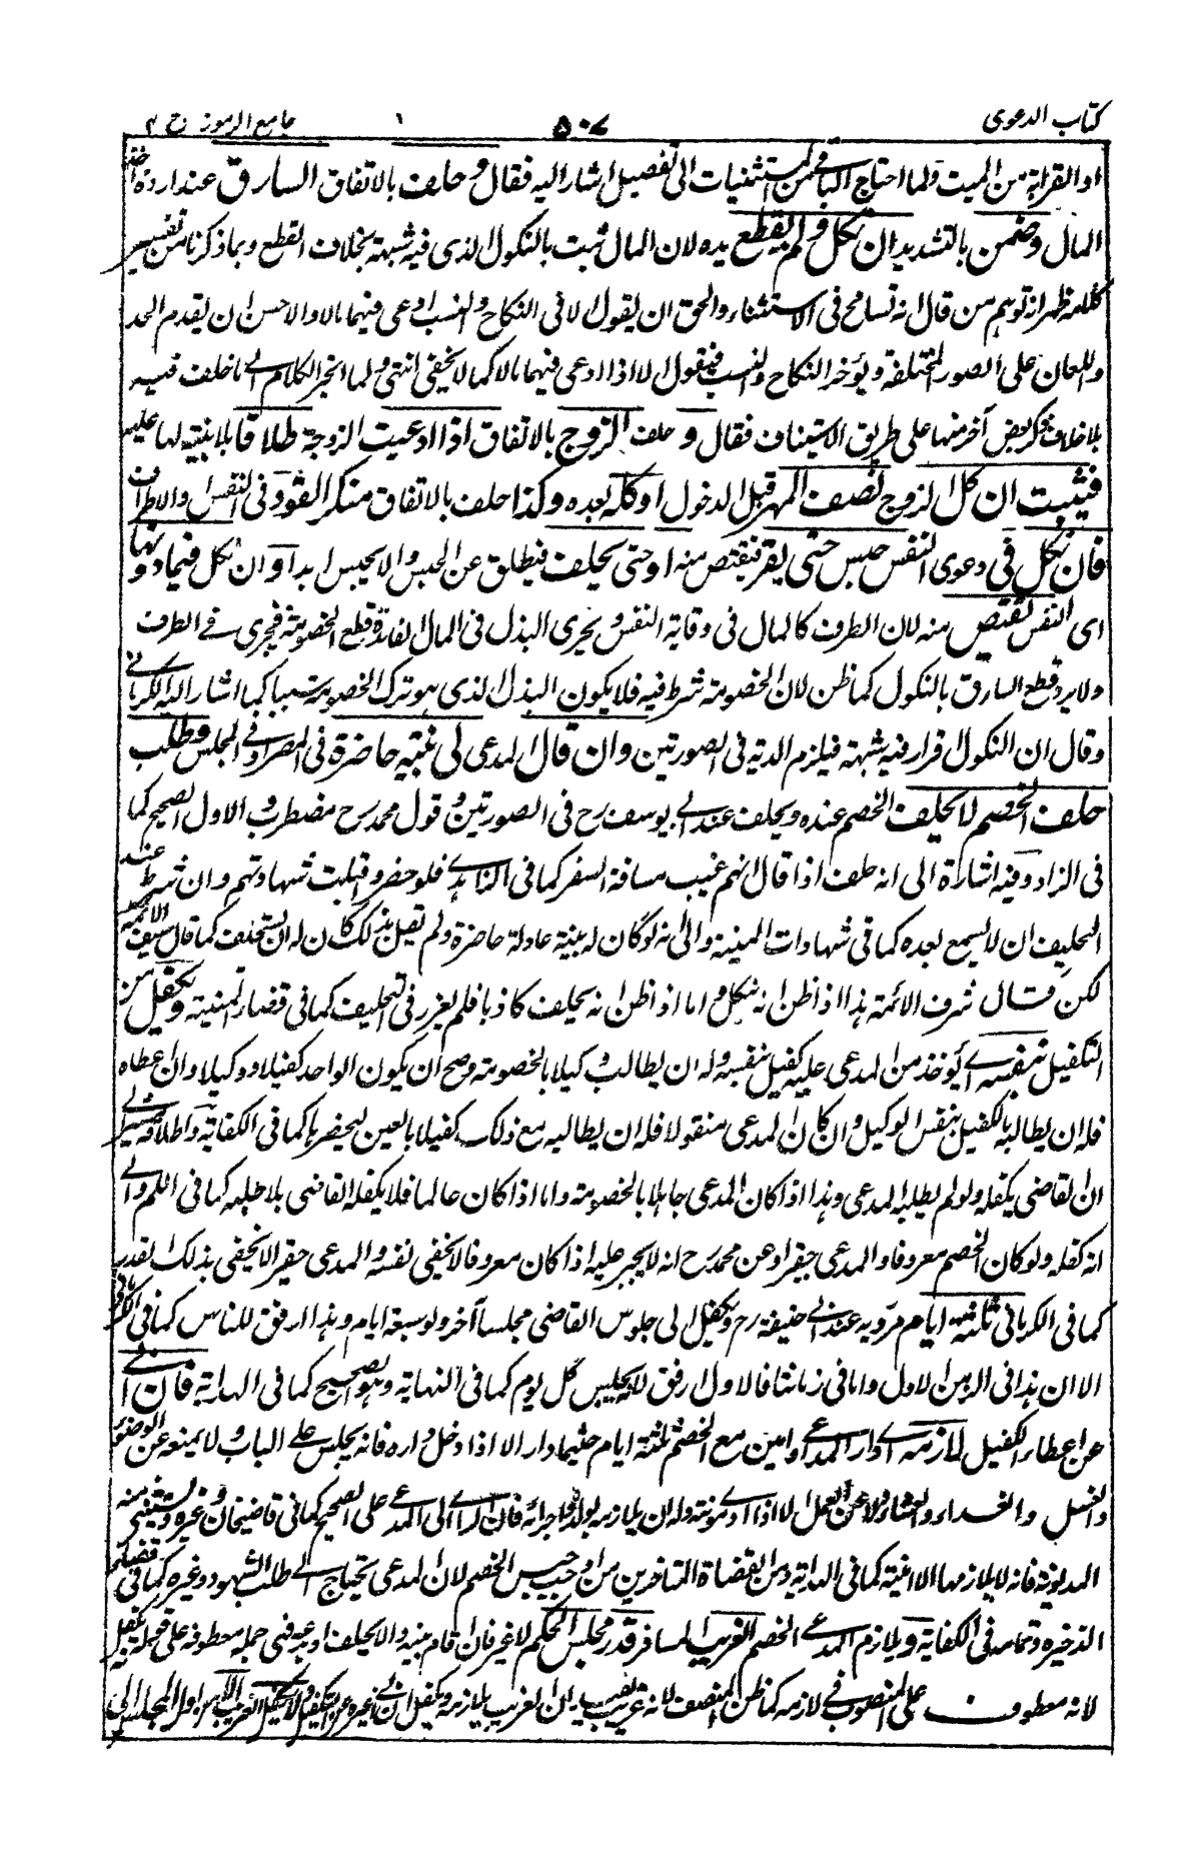 كتاب الدعوى ٥٠٧ ١ جامع الرموز ج ٢
او القرابة من الميت ولما احتاج الباقي من المستثنيات الى تفصيل اشار اليه فقال وحلف بالاتفاق السارق عند ارادة اخذ
المال وضمن بالتشديد ان نكل ولم يقطع يده لان المال ثبت بالنكول الذى فيه شبهة بخلاف القطع وبما ذكرنا من تفسير
كلامه ظهر انه توهم من قال انه تسامح فى الاستثناء والحق ان يقول لا فى النكاح والنسب ادعى فيهما مالا والاحسن ان يقدم الحد
واللعان على الصور المختلفة ويؤخر النكاح والنسب فيقول الا اذا ادعى فيهما مالا كما لا يخفى انتهى ولما انجر الكلام الے ما حلف فيه
بلا خلاف ذكر بعض آخر منها على طريق الاستيناف فقال و حلف الزوج بالاتفاق اذا ادعيت الزوجة طلاقا بلا بينة لها عليه
فيثبت ان نكل الزوج نصف المهر قبل الدخول او كله بعده وكذا حلف بالاتفاق منكر القود فى النفس والاطراف
فان نكل فى دعوى النفس حبس حتى يقر فيقتص منه او حتى يحلف فيطلق عن الحبس والا يحبس ابدا و ان نكل فيما دونها
اى النفس يقتص منه لان الطرف كالمال فى وقاية النفس ويجرى البذل فى المال لفائدة قطع الخصومة فيجرى فے الطرف
ولا يرد قطع السارق بالنكول كما ظن لان الخصومة شرط فيه فلا يكون البذل الذى هو ترك الخصومة سببا كما اشار اليه الكرمانى
وقال ان النكول اقرار فيه شبهة فيلزم الدية فى الصورتين وان قال المدعى لى بينة حاضرة فى المصر او فے المجلس وطلب
حلف الخصم لا يحلف الخصم عنده ويحلف عند ابے يوسف رح فى الصورتين وقول محمد رح مضطرب والاول الصحيح كما
فى الزاد وفيه اشارة الى انه حلف اذا قال انهم غيب مسافة السفر كما فى الزاهدے فلو حضروا قبلت شهادتهم وان شرط عند
التحليف ان لا يسمع بعده كما فى شهادات المنية والى انه لو كان له بينة عادلة حاضرة ولم تقبل بذلك كان له ان يستحلف كما قال سيف الائمة
لكن قال شرف الائمة هذا اذا ظن انه ينكل واما اذا ظن انه يحلف كاذبا فلم يعزر فى التحليف كما فى قضاء المنية ويكفل من
التكفيل بنفسه اے يؤخذ من المدعى عليه كفيل بنفسه وله ان يطالب وكيلا بالخصومة وصح ان يكون الواحد كفيلا ووكيلا وان اعطاه
فله ان يطالبه بالكفيل بنفس الوكيل وان كان المدعى منقولا فله ان يطالبه مع ذلك كفيلا بالعين ليحضرها كما فى الكفاية واطلاقه مشير الے
ان القاضى يكفله ولو لم يطلبه المدعى وهذا اذا كان المدعى جاهلا بالخصومة واما اذا كان عالما فلا يكفله القاضى بلا طلبه كما فى اللمم والے
انه كفله ولو كان الخصم معروفا والمدعى حقيرا وعن محمد رح انه لا يجبر عليه اذا كان معروفا لا يخفى نفسه والمدعى حقيرا لا يخفى بذلك القدر
كما فى الكرمانى ثلثة ايام مروية عند ابے حنيفة رح ويكفل الى جلوس القاضى مجلسا آخر ولو سبعة ايام وهذا ارفق للناس كما فى الكرمانى
الا ان هذا فى الزمن الاول واما فى زماننا فالاول ارفق لانه يجلس كل يوم كما فى النهاية وهو الصحيح كما فى الهداية فان ابے
عن اعطاء الكفيل لازمه اے دار المدعے او امين مع الخصم ثلثة ايام حيثما دار الا اذا دخل داره فانه يجلس على الباب ولا يمنعه عن الوضوء
والغسل والغداء والعشاء ولا عن العمل الا اذا ادى مؤنته وله ان يلازمه بولده او اجرائه فان الرأے الى المدعے على الصحيح كما فى قاضيخان وغيره ويستثنى منه
المديونة فانه لا يلازمها الا امينة كما فى الهداية ومن القضاة المتاخرين من اوجب حبس الخصم لان المدعى يحتاج الے طلب الشهود وغيره كما فى قضاء
الذخيرة وتمامه فى الكفاية ويلازم المدعے الخصم الغريب المسافر قدر مجلس الحكم لا غير فان اقام بينة والا يحلف او يدعه فهى جملة معطوفة على جملة يكفل
لانه معطوف على المنصوب فے لازمه كما ظن المصنف لانه غريب